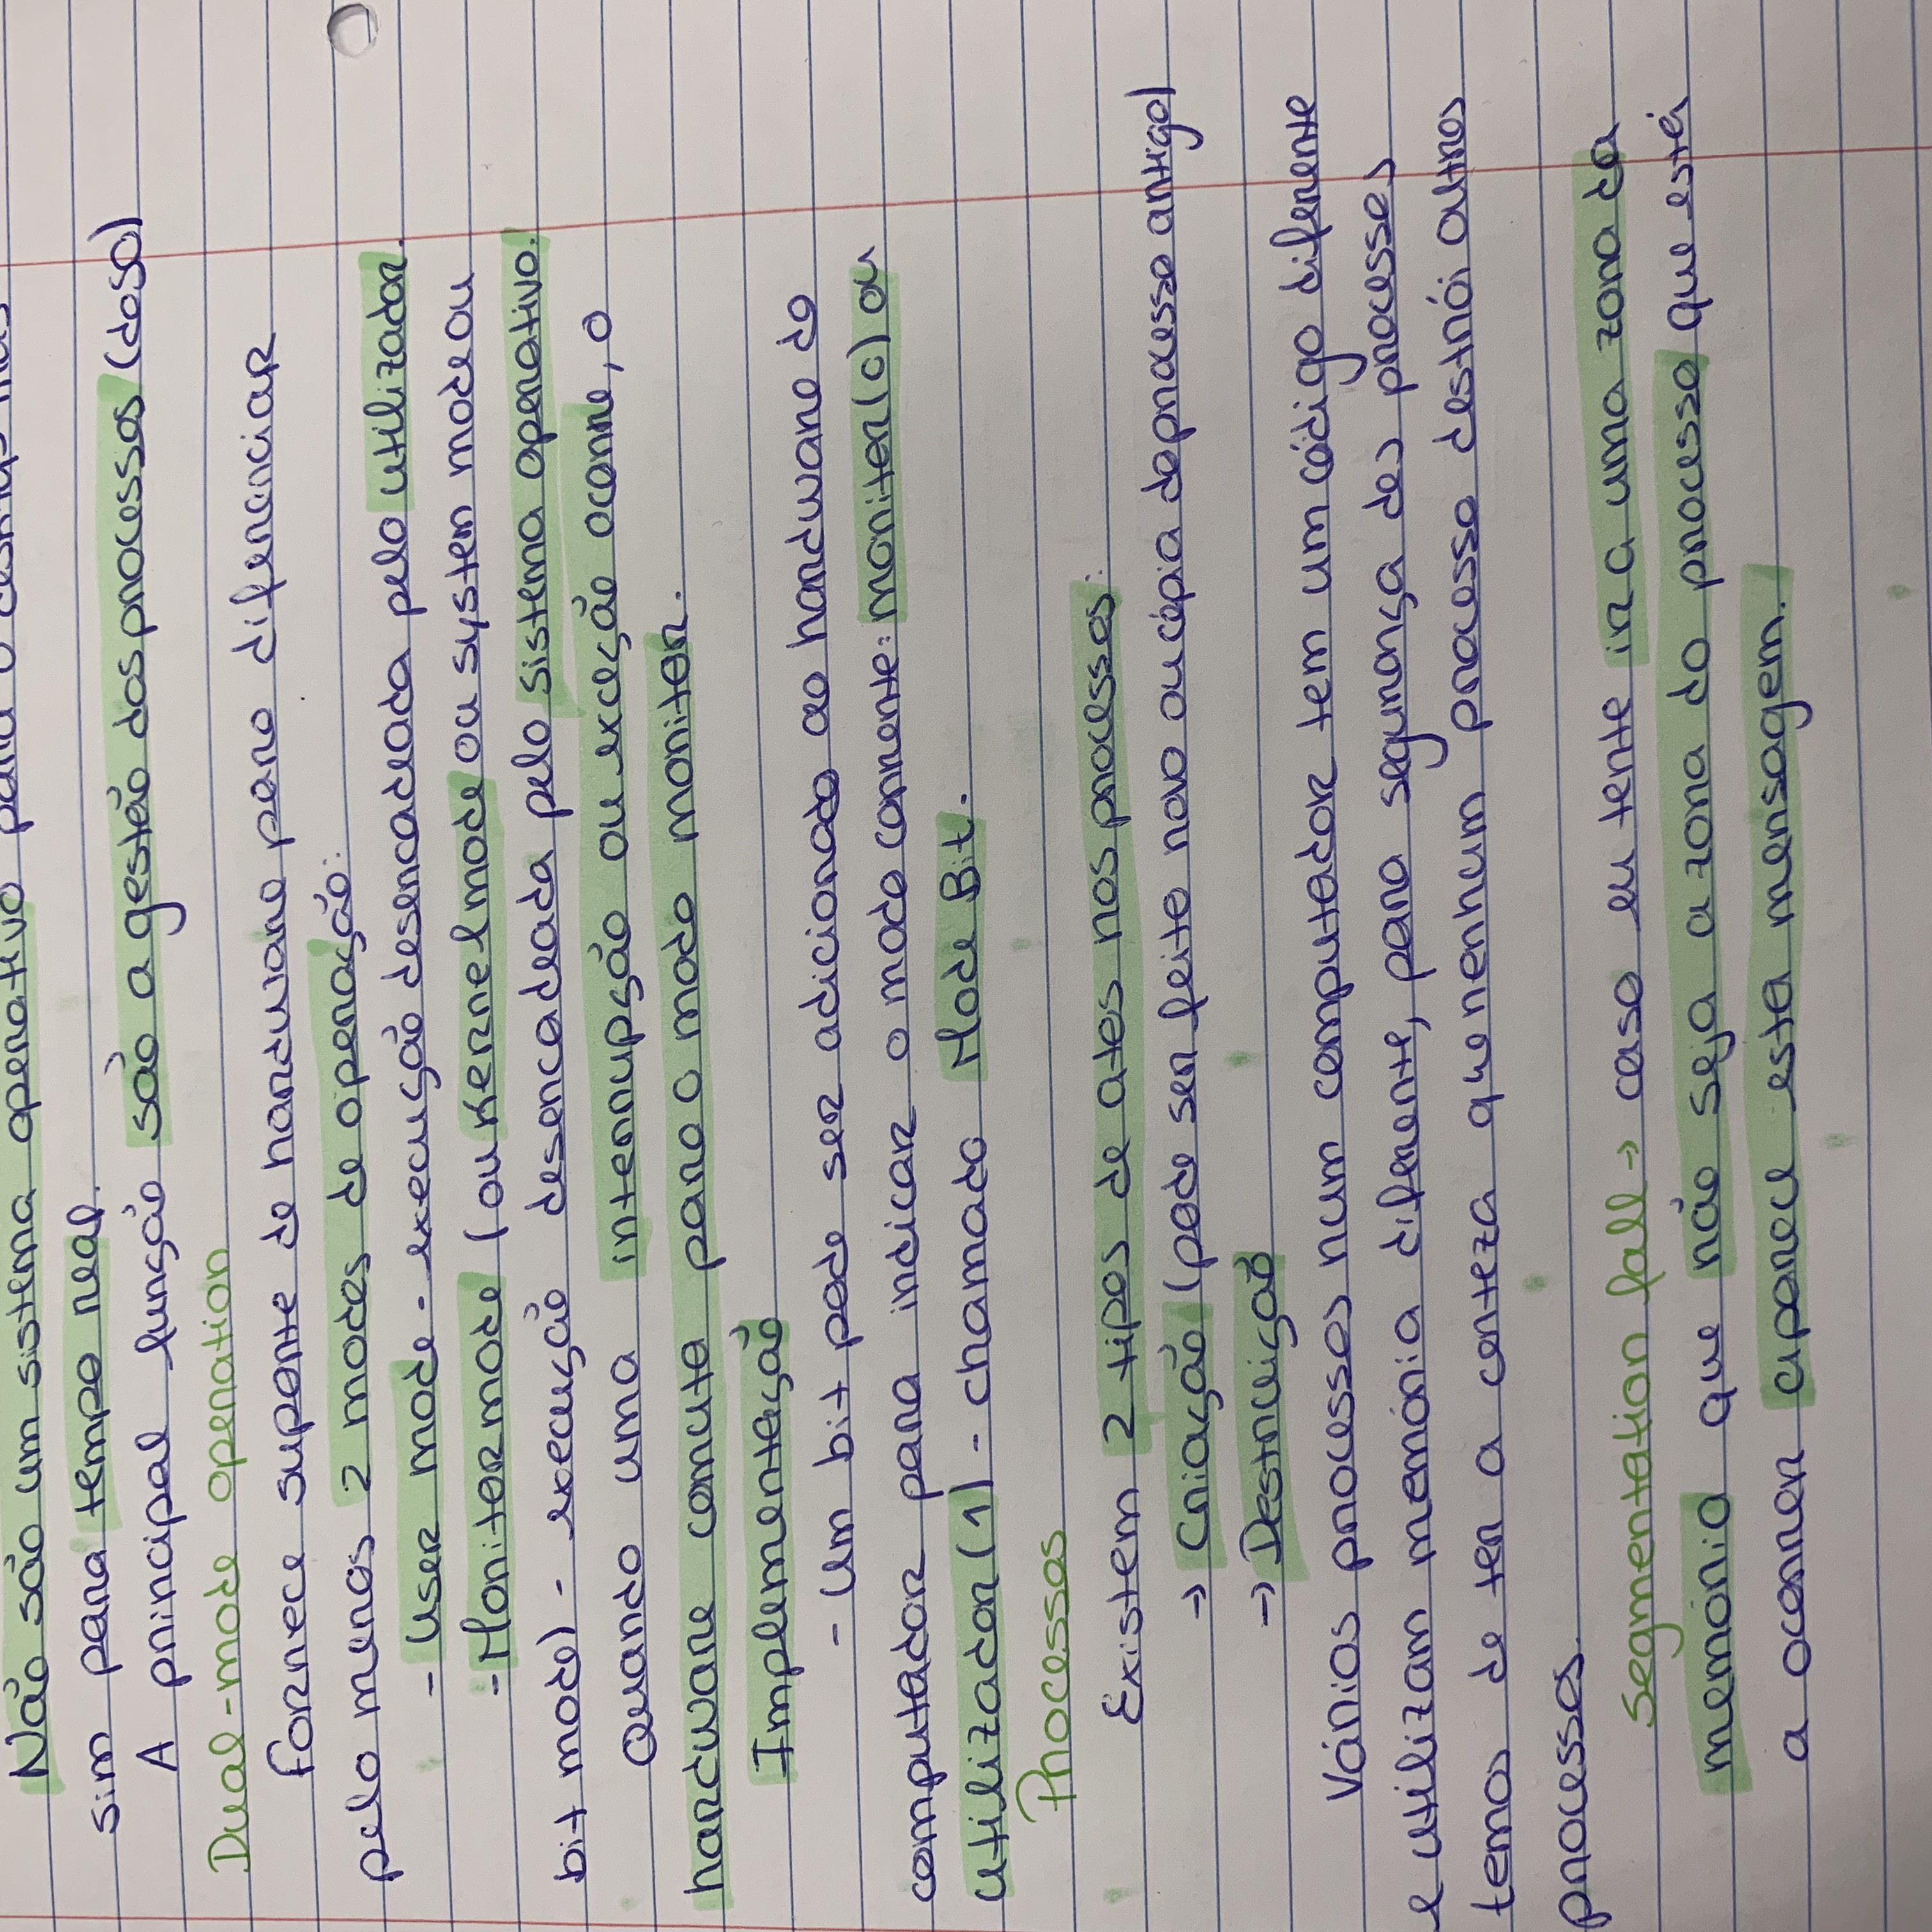 Não são um sistema operativo para o desktop mas
sim para tempo real.
A principal função são a gestão dos processos (do SO)
Dual-mode operation
Fornece suporte de hardware para diferenciar
pelo menos 2 modos de operação:
- User mode - execução desencadeada pelo utilizador.
- Monitor mode (ou Kernel mode ou system mode ou
bit mode) - execução desencadeada pelo sistema operativo.
Quando uma interrupção ou exceção ocorre, o
hardware comuta para o modo monitor.
Implementação
- Um bit pode ser adicionado ao hardware do
computador para indicar o modo corrente: monitor(0) ou
utilizador(1) - chamado Mode Bit.
Processos
Existem 2 tipos de atos nos processos:
→ Criação (pode ser feito novo ou cópia do processo antigo)
→ Destruição
Vários processos num computador tem um código diferente
e utilizam memória diferente, para segurança dos processos
temos de ter a certeza que nenhum processo destrói outros
processos.
Segmentation fall → caso eu tente ir a uma zona da
memória que não seja a zona do processo que está
a ocorrer aparece esta mensagem.